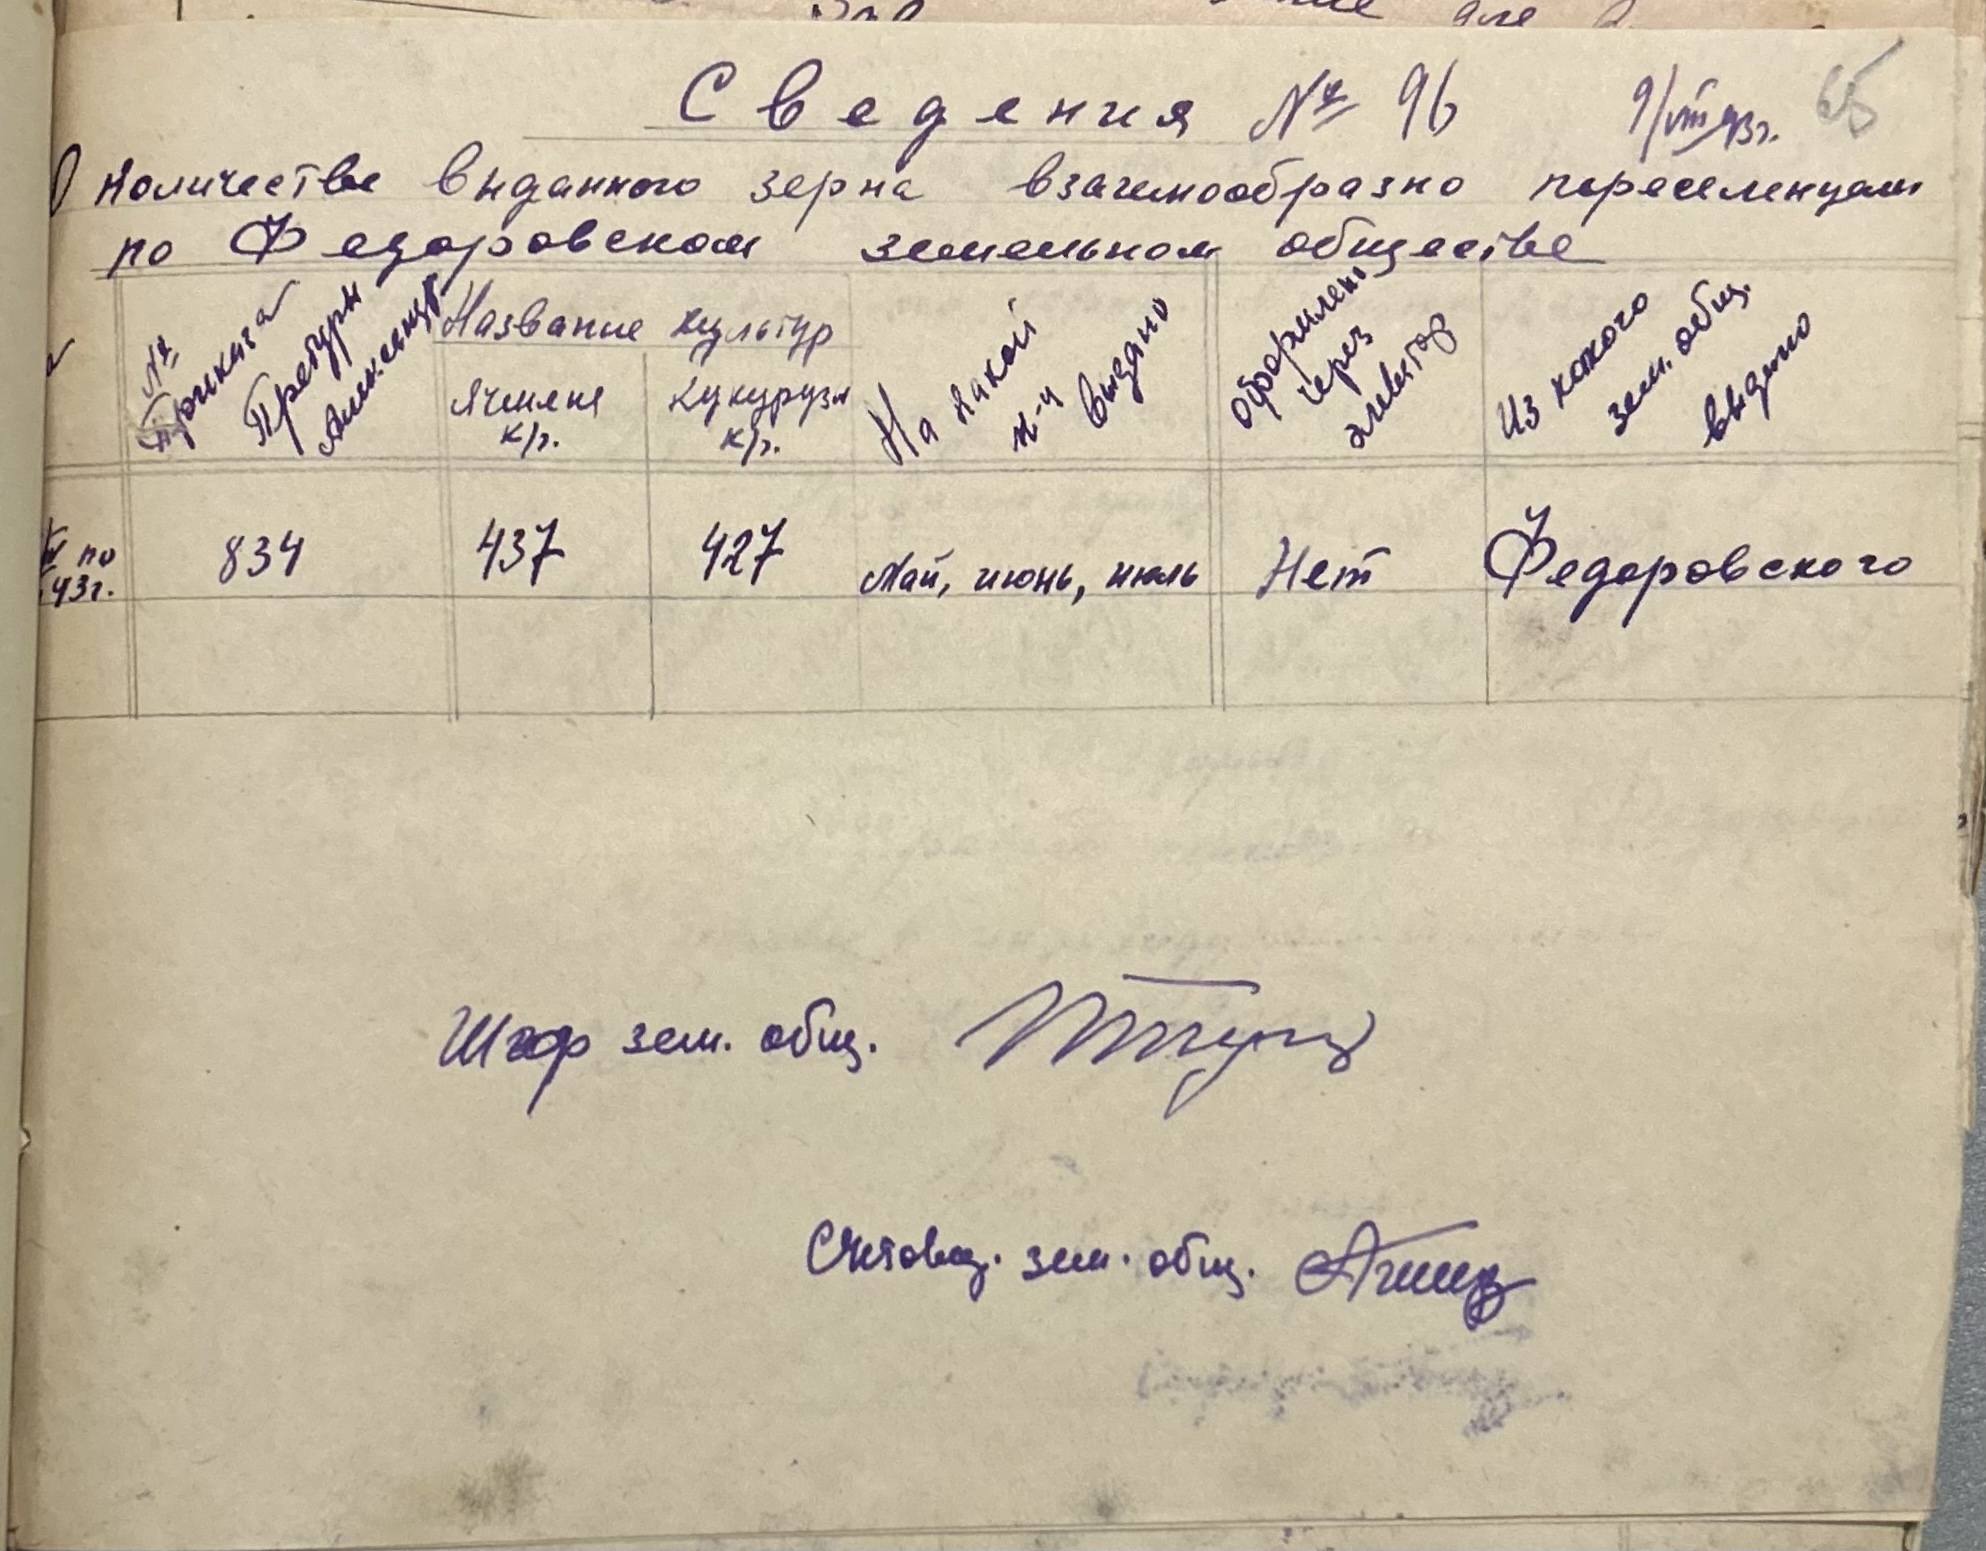 Сведения № 96 9/VIII 43г. 65
О количестве выданного зерна взаимообразно переселенцам
по Федоровском земельном обществе
№ приказа Претуры
Название культур
Ячменя к/г.
Кукурузы к/г.
На какой м-ц выдано
Оформлено через элеватор
Из какого зем. общ. выдано
по 43г.
834
437
427
Май, июнь, июль
Нет
Федоровского
Шеф зем. общ.
Счетовод. зем. общ.